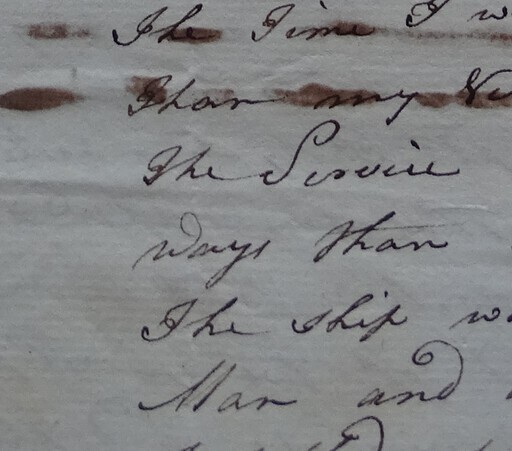 The Time I
Than my
The Service
ways than
The ship
Man and